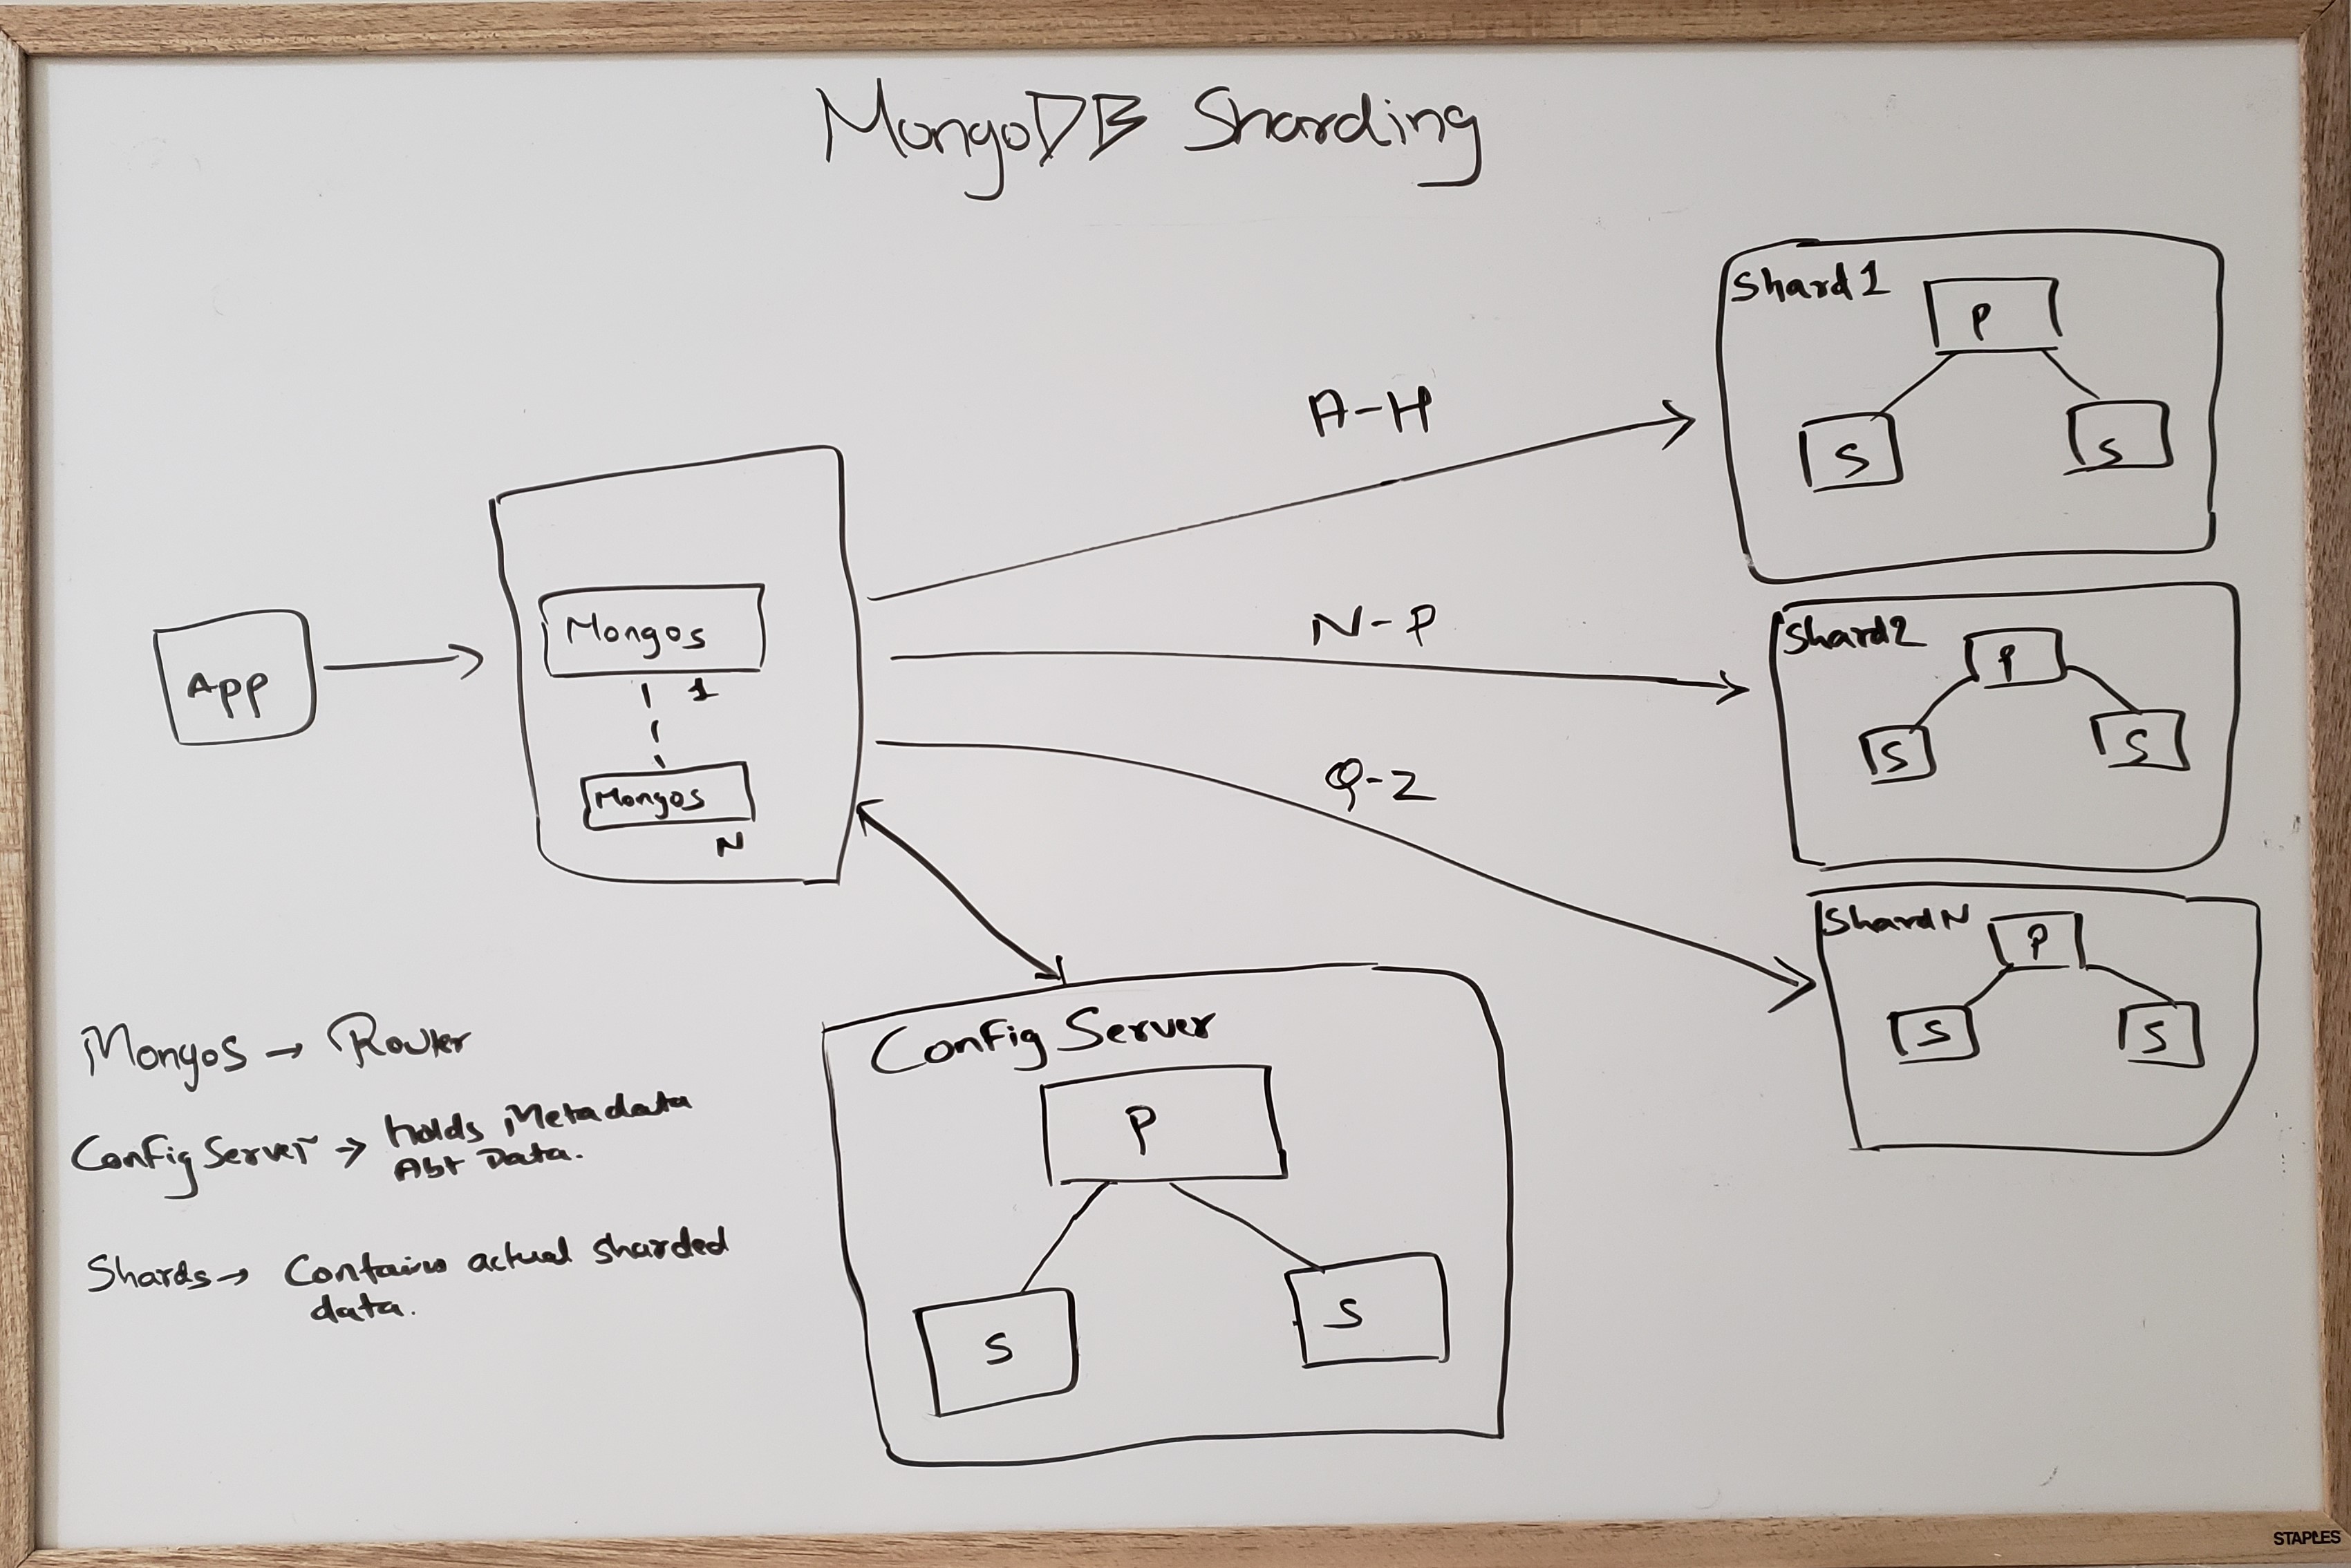 MongoDB Sharding
Shard1
P
S
S
A-H
App
Mongos
1
Mongos
N
N-P
Shard2
P
S
S
Q-Z
ShardN
P
S
S
Config Server
P
S
S
Mongos → Router
Config Server → holds Metadata
Abt Data.
Shards → Contains actual sharded
data.
STAPLES